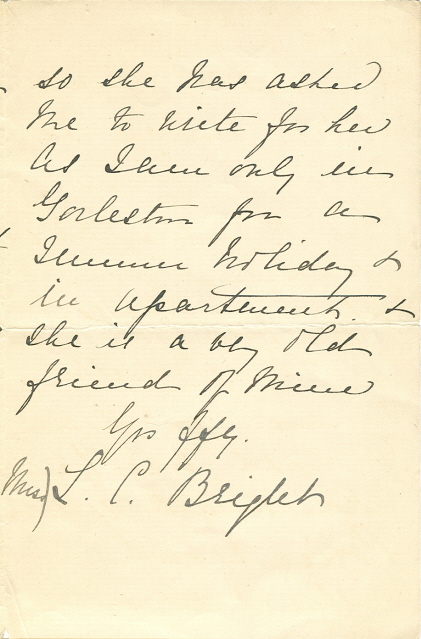 so she has asked
me to write for her
as I am only in
Gorleston for a
Summer holiday &
in apartments. &
she is a very old
friend of mine
Yrs ffy.
Miss) L. C. Bright